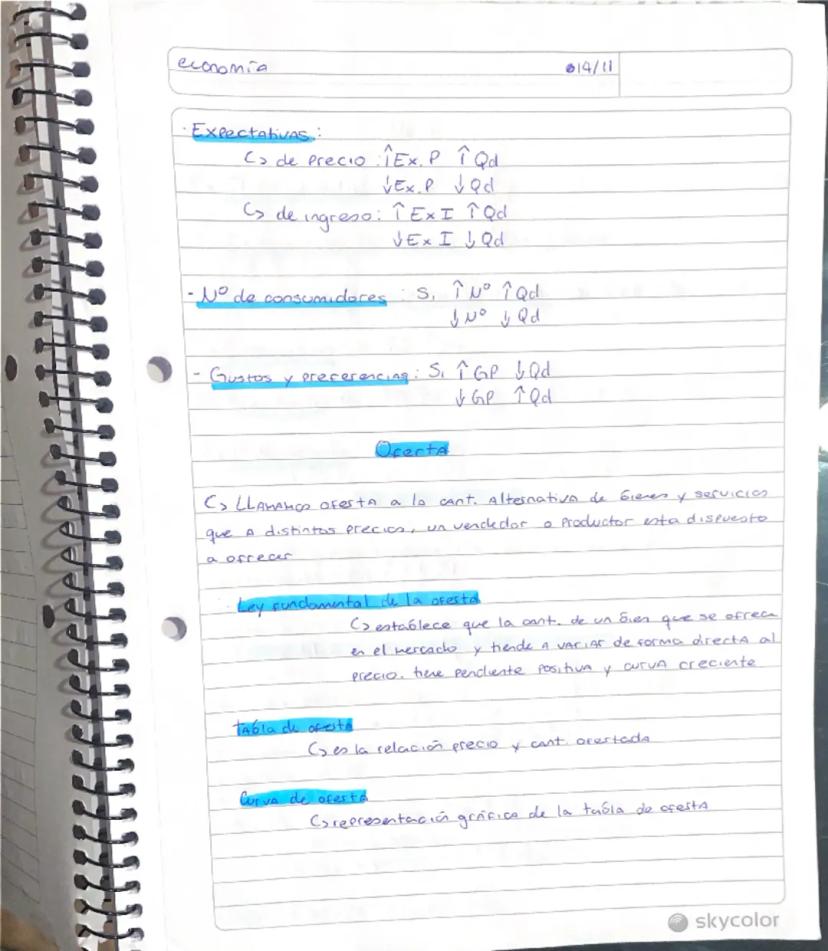 economía 14/11
· Expectativas:
↳ de precio: ↑Ex. P ↑Qd
↓Ex. P ↓Qd
↳ de ingreso: ↑Ex I ↑Qd
↓Ex I ↓Qd
- Nº de consumidores: Si ↑Nº ↑Qd
↓Nº ↓Qd
- Gustos y preferencias: Si ↑GP ↓Qd
↓GP ↑Qd
Oferta
↳ LLAMAMOS OFERTA a la cant. Alternativa de bienes y servicios
que A distintos precios, un vendedor o Productor esta dispuesto
a ofrecer
Ley fundamental de la oferta
↳ establece que la cant. de un bien que se ofrece
en el mercado y tiende A VARIAR de forma directA al
precio. tiene pendiente positiva y curva creciente
tabla de oferta
↳ es la relación precio y cant. ofertada
Curva de oferta
↳ representación gráfica de la tabla de oferta
skycolor